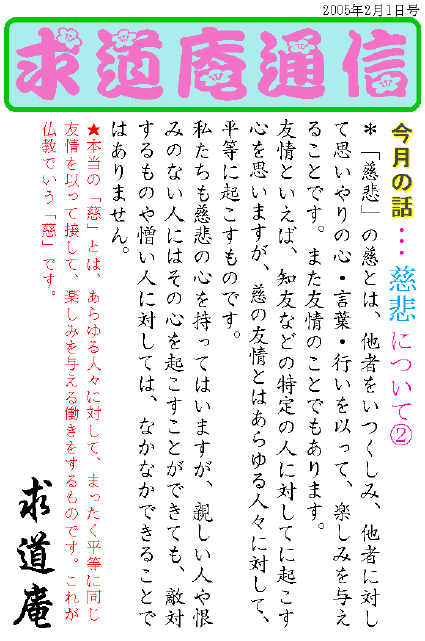 2005年2月1日号
求道庵通信
今月の話…慈悲について②
＊「慈悲」の慈とは、他者をいつくしみ、他者に対し
て思いやりの心・言葉・行いを以って、楽しみを与え
ることです。また友情のことでもあります。
友情といえば、知友などの特定の人に対してに起こす
心を思いますが、慈の友情とはあらゆる人々に対して、
平等に起こすものです。
私たちも慈悲の心を持ってはいますが、親しい人や恨
みのない人にはその心を起こすことができても、敵対
するものや憎い人に対しては、なかなかできることで
はありません。
★本当の「慈」とは、あらゆる人々に対して、まったく平等に同じ
友情を以って接して、楽しみを与える働きをするものです。これが
仏教でいう「慈」です。
求道庵